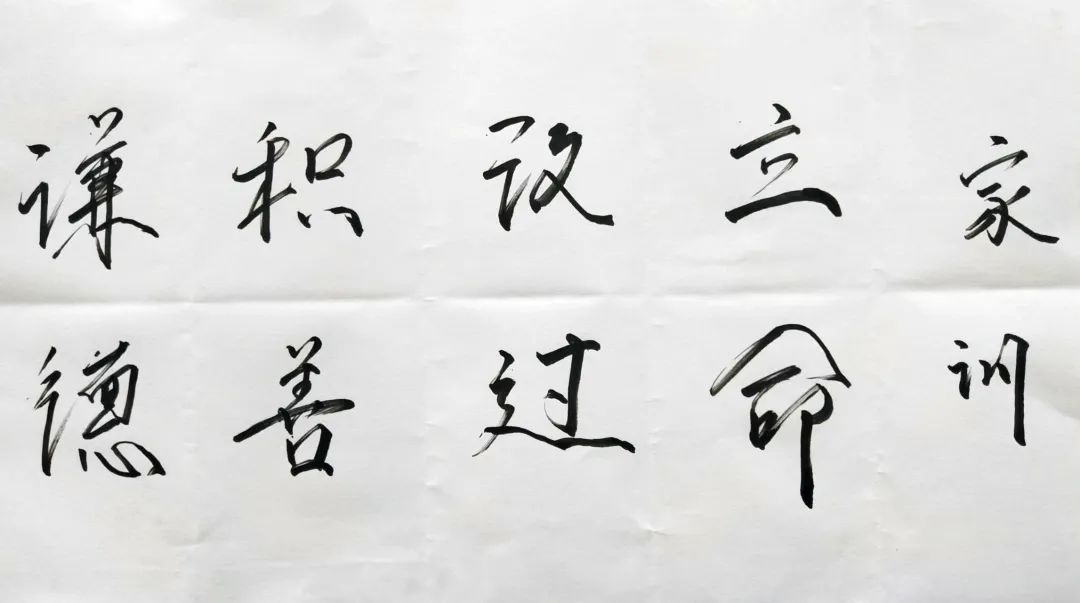 家训
立命
改过
积善
谦德